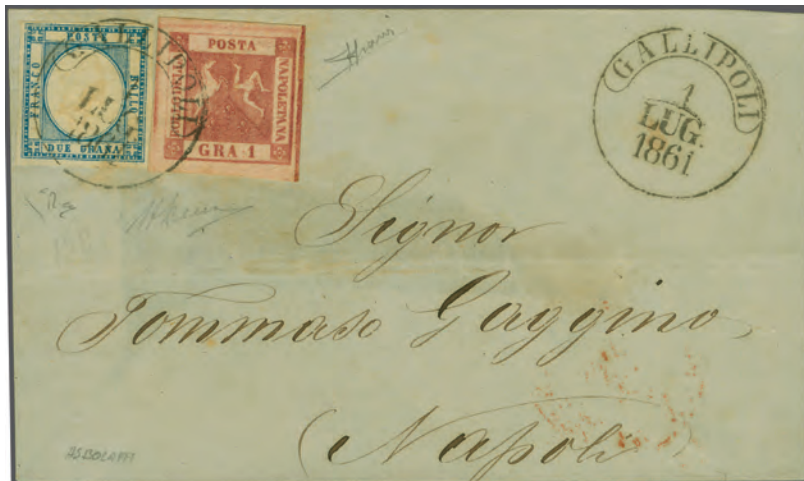 POSTA
FRANCO
BOLLO
DUE GRANA
POSTA
BOLLO DELLA
NAPOLETANA
GRA 1
GALLIPOLI
GALLIPOLI
1
LUG.
1861
Signor
Tommaso Gaggino
(Napoli